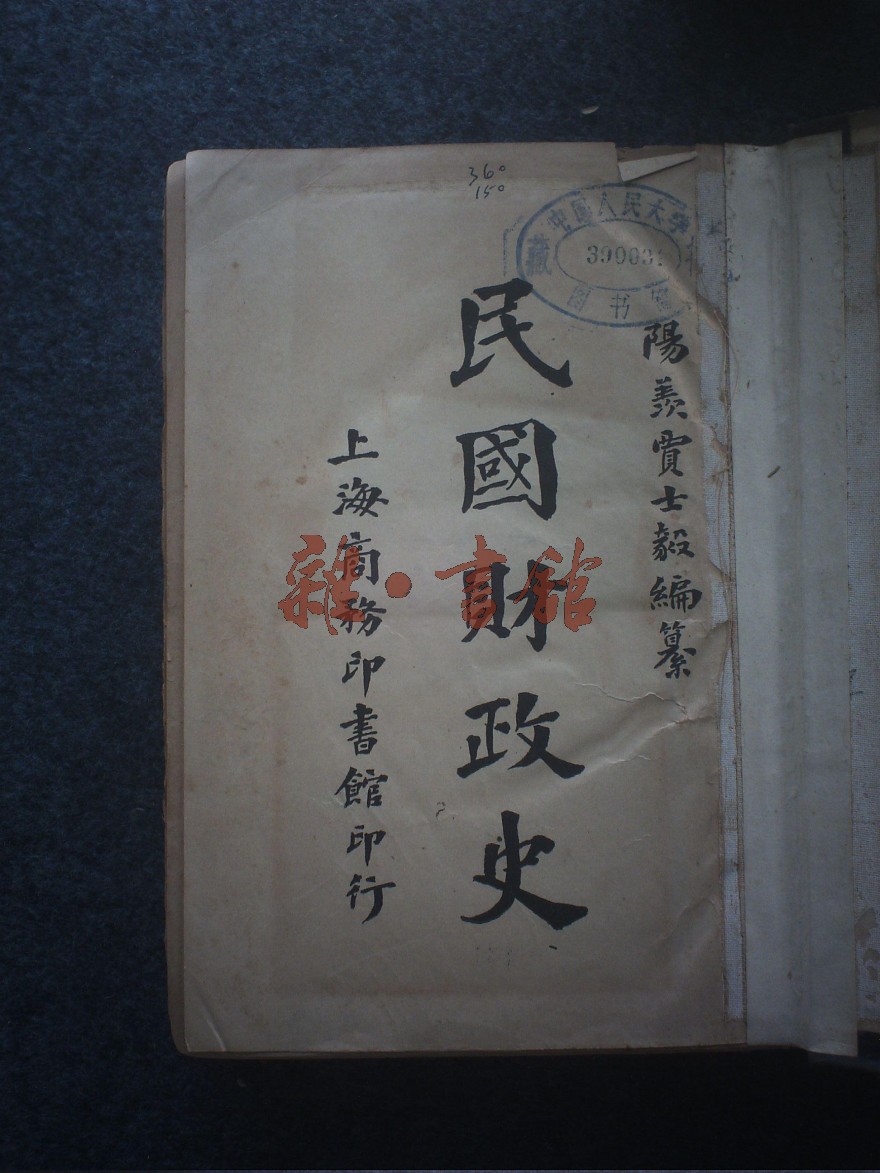 陽羨賈士毅編纂
民國財政史
上海商務印書館印行
360
150
中国人民大学
藏
390031
图书馆
雜·書館